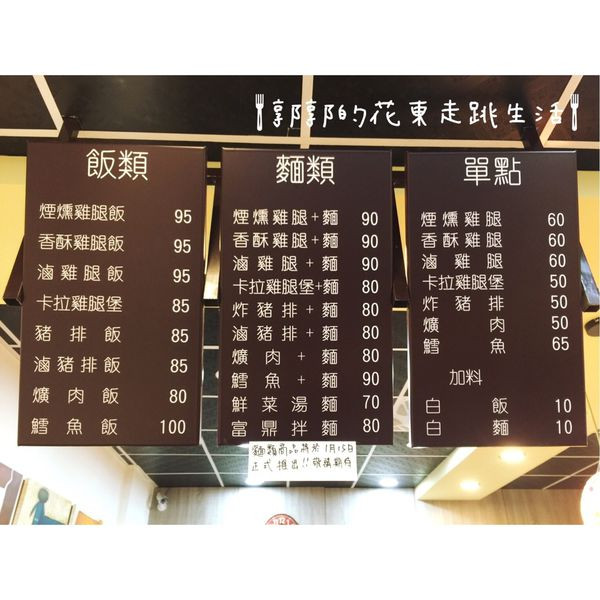 郭郭的花東走跳生活
飯類
煙燻雞腿飯 95
香酥雞腿飯 95
滷雞腿飯 95
卡拉雞腿堡 85
豬排飯 85
滷豬排飯 85
爌肉飯 80
鱈魚飯 100
麵類
煙燻雞腿+麵 90
香酥雞腿+麵 90
滷雞腿+麵 90
卡拉雞腿堡+麵 80
炸豬排+麵 80
滷豬排+麵 80
爌肉+麵 80
鱈魚+麵 90
鮮菜湯麵 70
富鼎拌麵 80
單點
煙燻雞腿 60
香酥雞腿 60
滷雞腿 60
卡拉雞腿堡 50
炸豬排 50
爌肉 50
鱈魚 65
加料
白飯 10
白麵 10
麵類商品將於1月15日
正式推出!!敬請期待